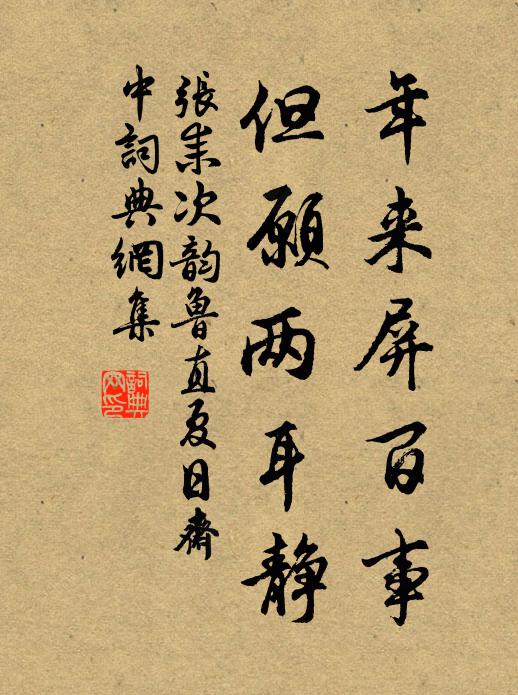 年来屏百事
但願两耳静
張耒次韵魯直夏日齋
中詞典網集
詞典网印